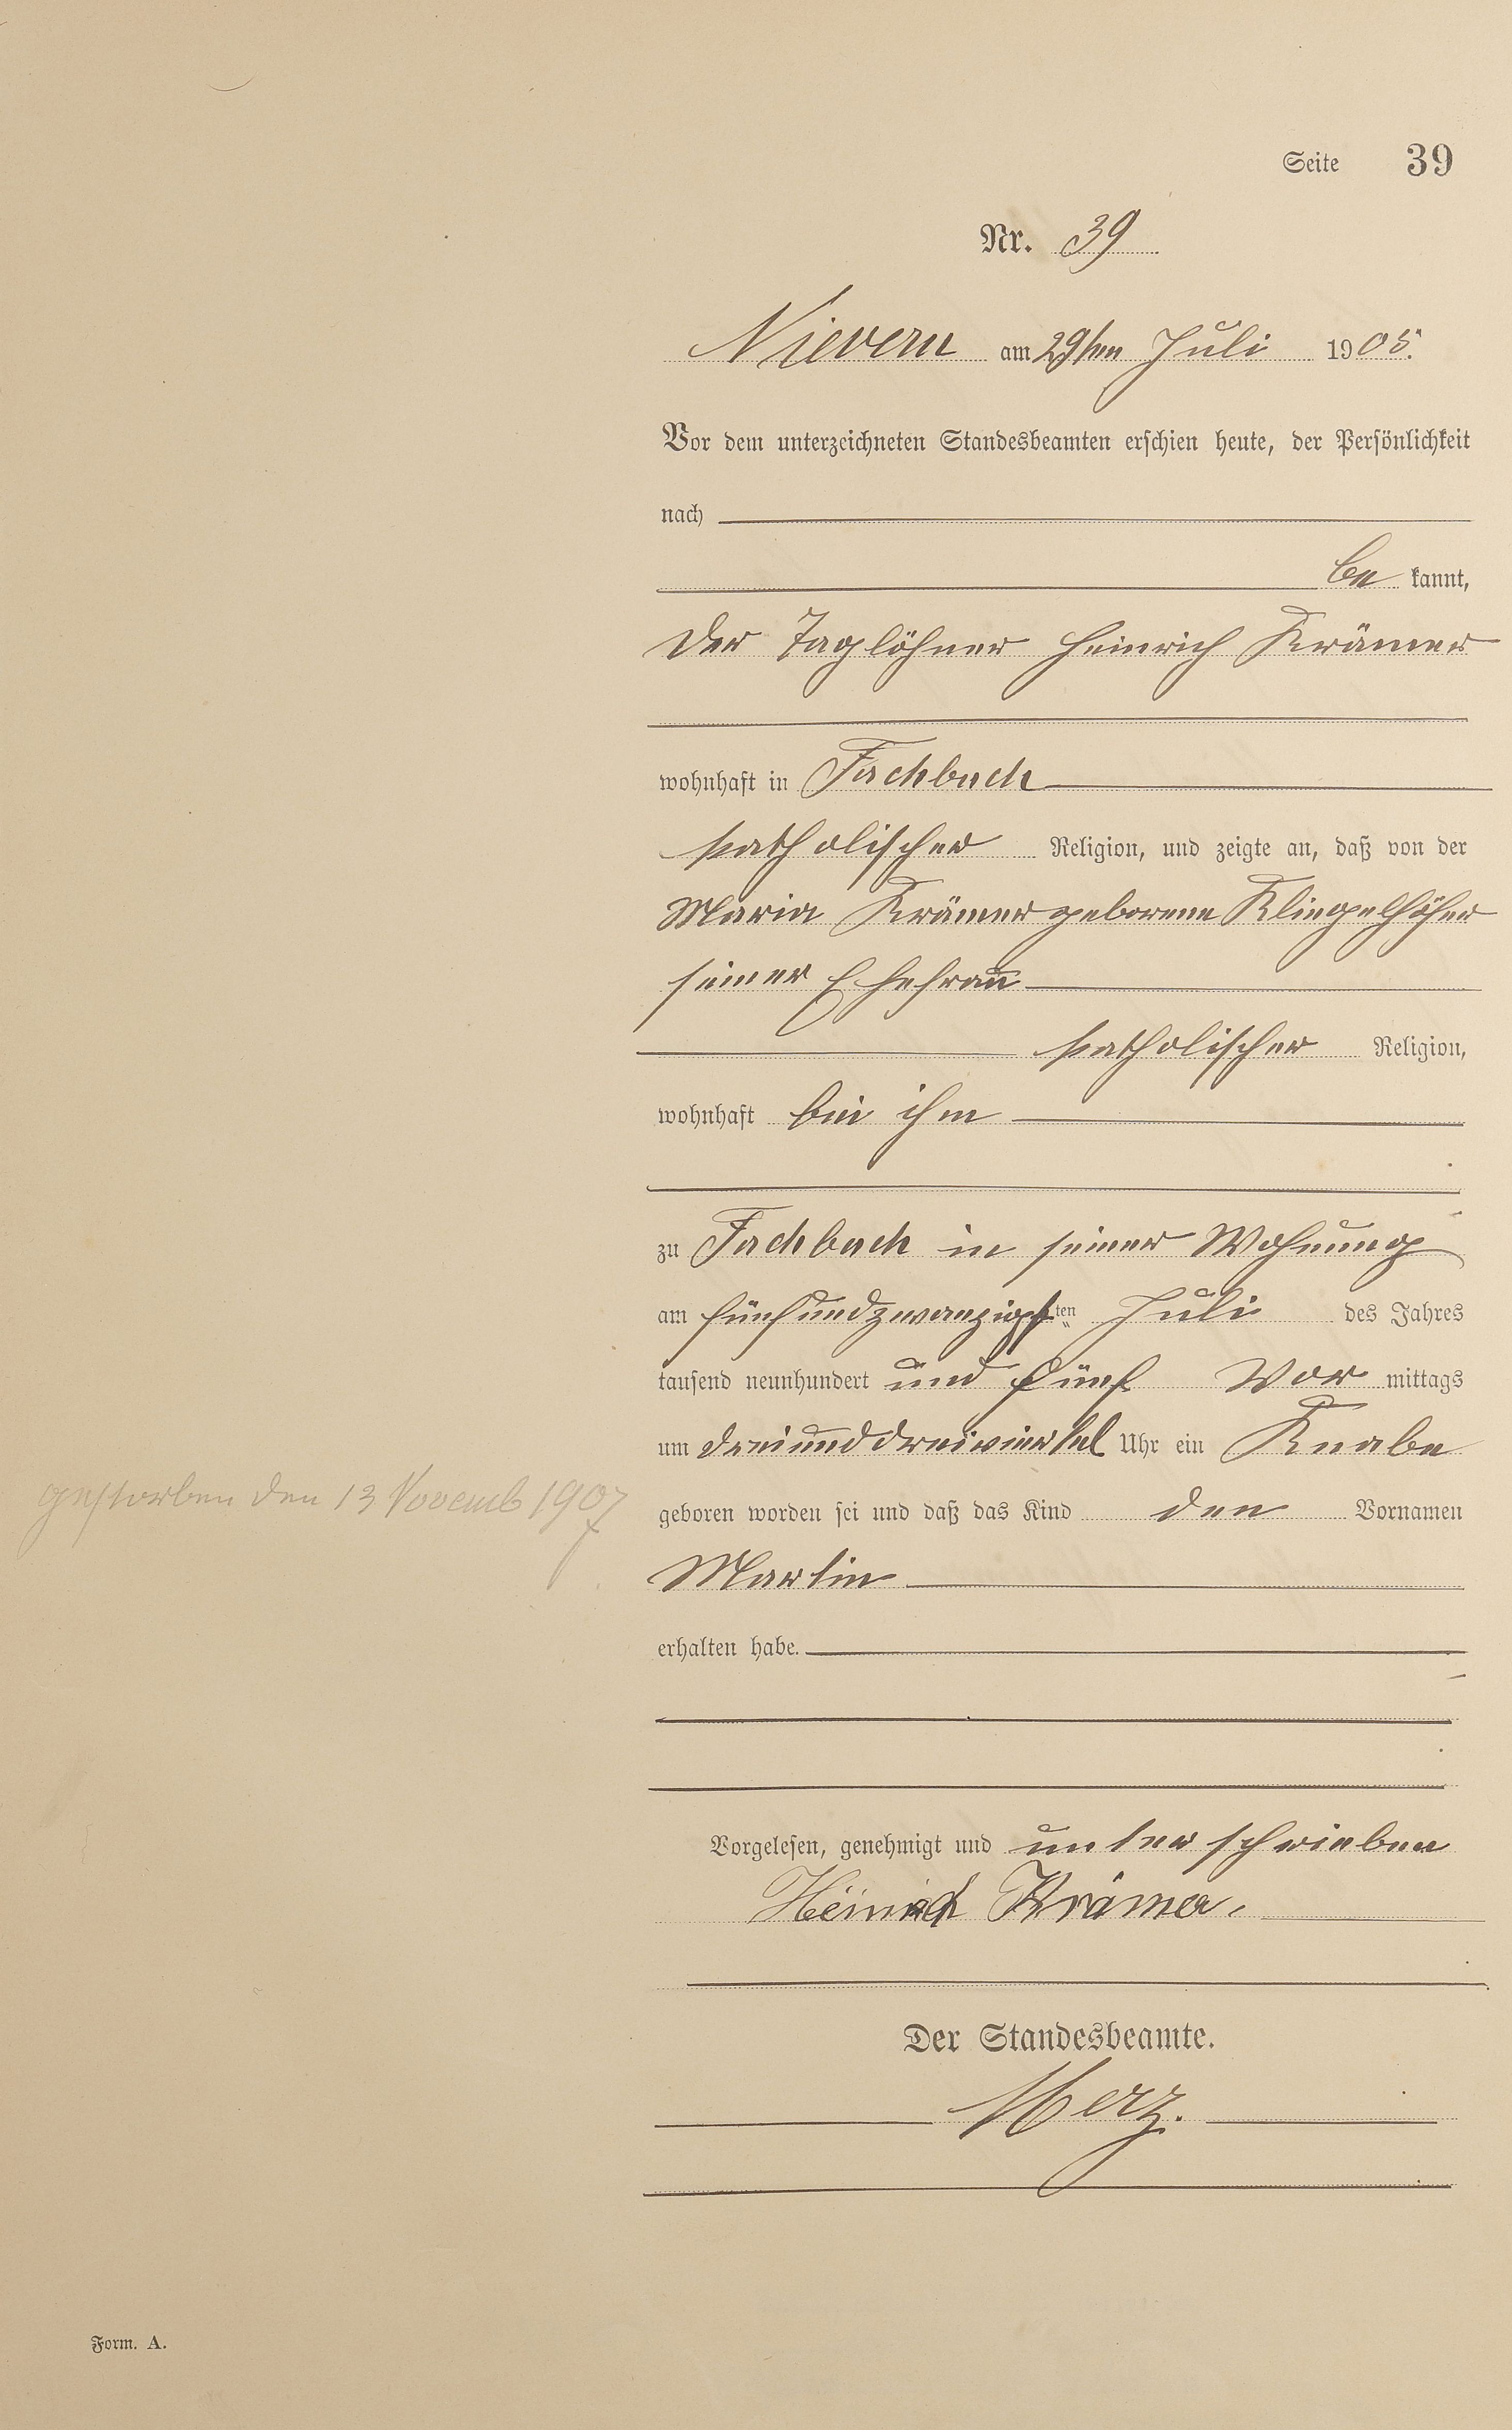 Seite 39
Nr. 39
Nievern am 29ten Juli 1905.
Vor dem unterzeichneten Standesbeamten erschien heute, der Persönlichkeit
nach
be kannt,
der Taglöhner Heinrich Krämer
wohnhaft in Fachbach
katholischer Religion, und zeigte an, daß von der
Maria Krämer geborene Klingelhöfer
seiner Ehefrau
katholischer Religion,
wohnhaft bei ihm
zu Fachbach in seiner Wohnung
am fünfundzwanzigsten Juli des Jahres
tausend neunhundert und fünf Vor mittags
um dreiunddreiviertel Uhr ein Knabe
gestorben den 13 Novemb 1907
geboren worden sei und daß das Kind den Vornamen
Martin
erhalten habe.
Vorgelesen, genehmigt und unterschrieben
Heinrich Krämer.
Der Standesbeamte.
Merz.
Form. A.